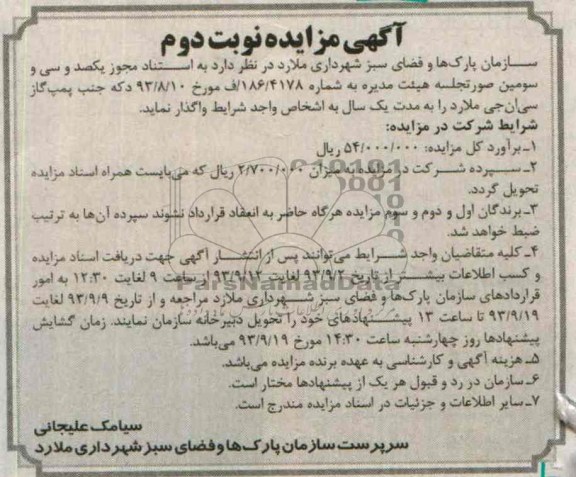 آگهی مزایده نوبت دوم
سازمان پارک‌ها و فضای سبز شهرداری ملارد در نظر دارد به استناد مجوز یکصد و سی و
سومین صورتجلسه هیئت مدیره به شماره ۱۸۶/۴۱۷۸/ف مورخ ۹۳/۸/۱۰ دکه جنب پمپ‌گاز
سی‌ان‌جی ملارد را به مدت یک سال به اشخاص واجد شرایط واگذار نماید.
شرایط شرکت در مزایده:
۱ـ برآورد کل مزایده: ۵۴/۰۰۰/۰۰۰ ریال
۲ـ سپرده شرکت در مزایده به میزان ۲/۷۰۰/۰۰۰ ریال که می‌بایست همراه اسناد مزایده
تحویل گردد.
۳ـ برندگان اول و دوم و سوم مزایده هرگاه حاضر به انعقاد قرارداد نشوند سپرده آن‌ها به ترتیب
ضبط خواهد شد.
۴ـ کلیه متقاضیان واجد شرایط می‌توانند پس از انتشار آگهی جهت دریافت اسناد مزایده
و کسب اطلاعات بیشتر از تاریخ ۹۳/۹/۲ لغایت ۹۳/۹/۱۲ از ساعت ۹ لغایت ۱۲:۳۰ به امور
قراردادهای سازمان پارک‌ها و فضای سبز شهرداری ملارد مراجعه و از تاریخ ۹۳/۹/۹ لغایت
۹۳/۹/۱۹ تا ساعت ۱۳ پیشنهادهای خود را تحویل دبیرخانه سازمان نمایند. زمان گشایش
پیشنهادها روز چهارشنبه ساعت ۱۴:۳۰ مورخ ۹۳/۹/۱۹ می‌باشد.
۵ـ هزینه آگهی و کارشناسی به عهده برنده مزایده می‌باشد.
۶ـ سازمان در رد و قبول هر یک از پیشنهادها مختار است.
۷ـ سایر اطلاعات و جزئیات در اسناد مزایده مندرج است.
سیامک علیجانی
سرپرست سازمان پارک‌ها و فضای سبز شهرداری ملارد
ParsNamadData